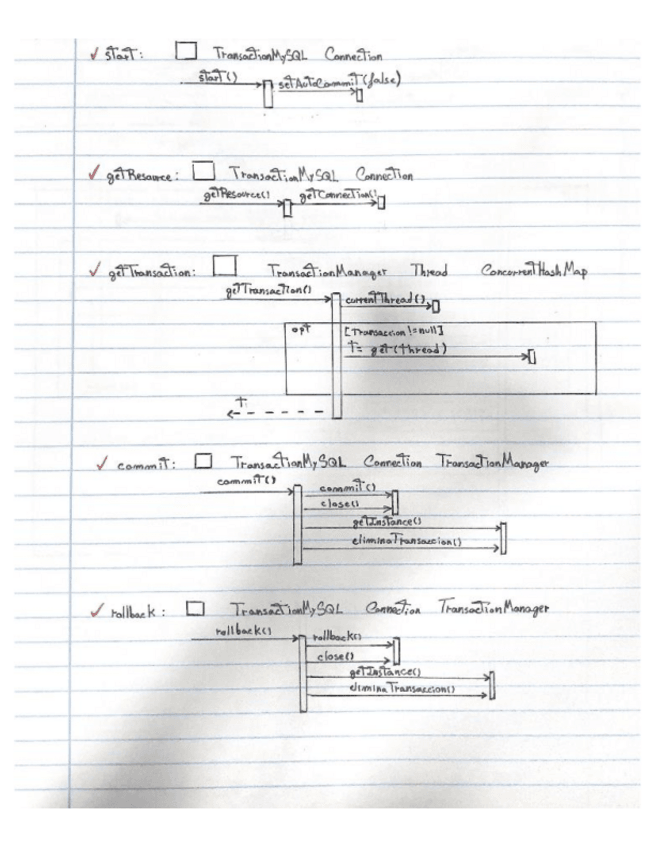 ✓ start: TransactionMySQL Connection
start() setAutoCommit(false)
✓ getResource: TransactionMySQL Connection
getResource() getConnection()
✓ getTransaction: TransactionManager Thread ConcurrentHashMap
getTransaction() currentThread()
opt [Transaccion != null]
T= get(thread)
T
✓ commit: TransactionMySQL Connection TransactionManager
commit() commit()
close()
getInstance()
eliminaTransaccion()
✓ rollback: TransactionMySQL Connection TransactionManager
rollback() rollback()
close()
getInstance()
eliminaTransaccion()